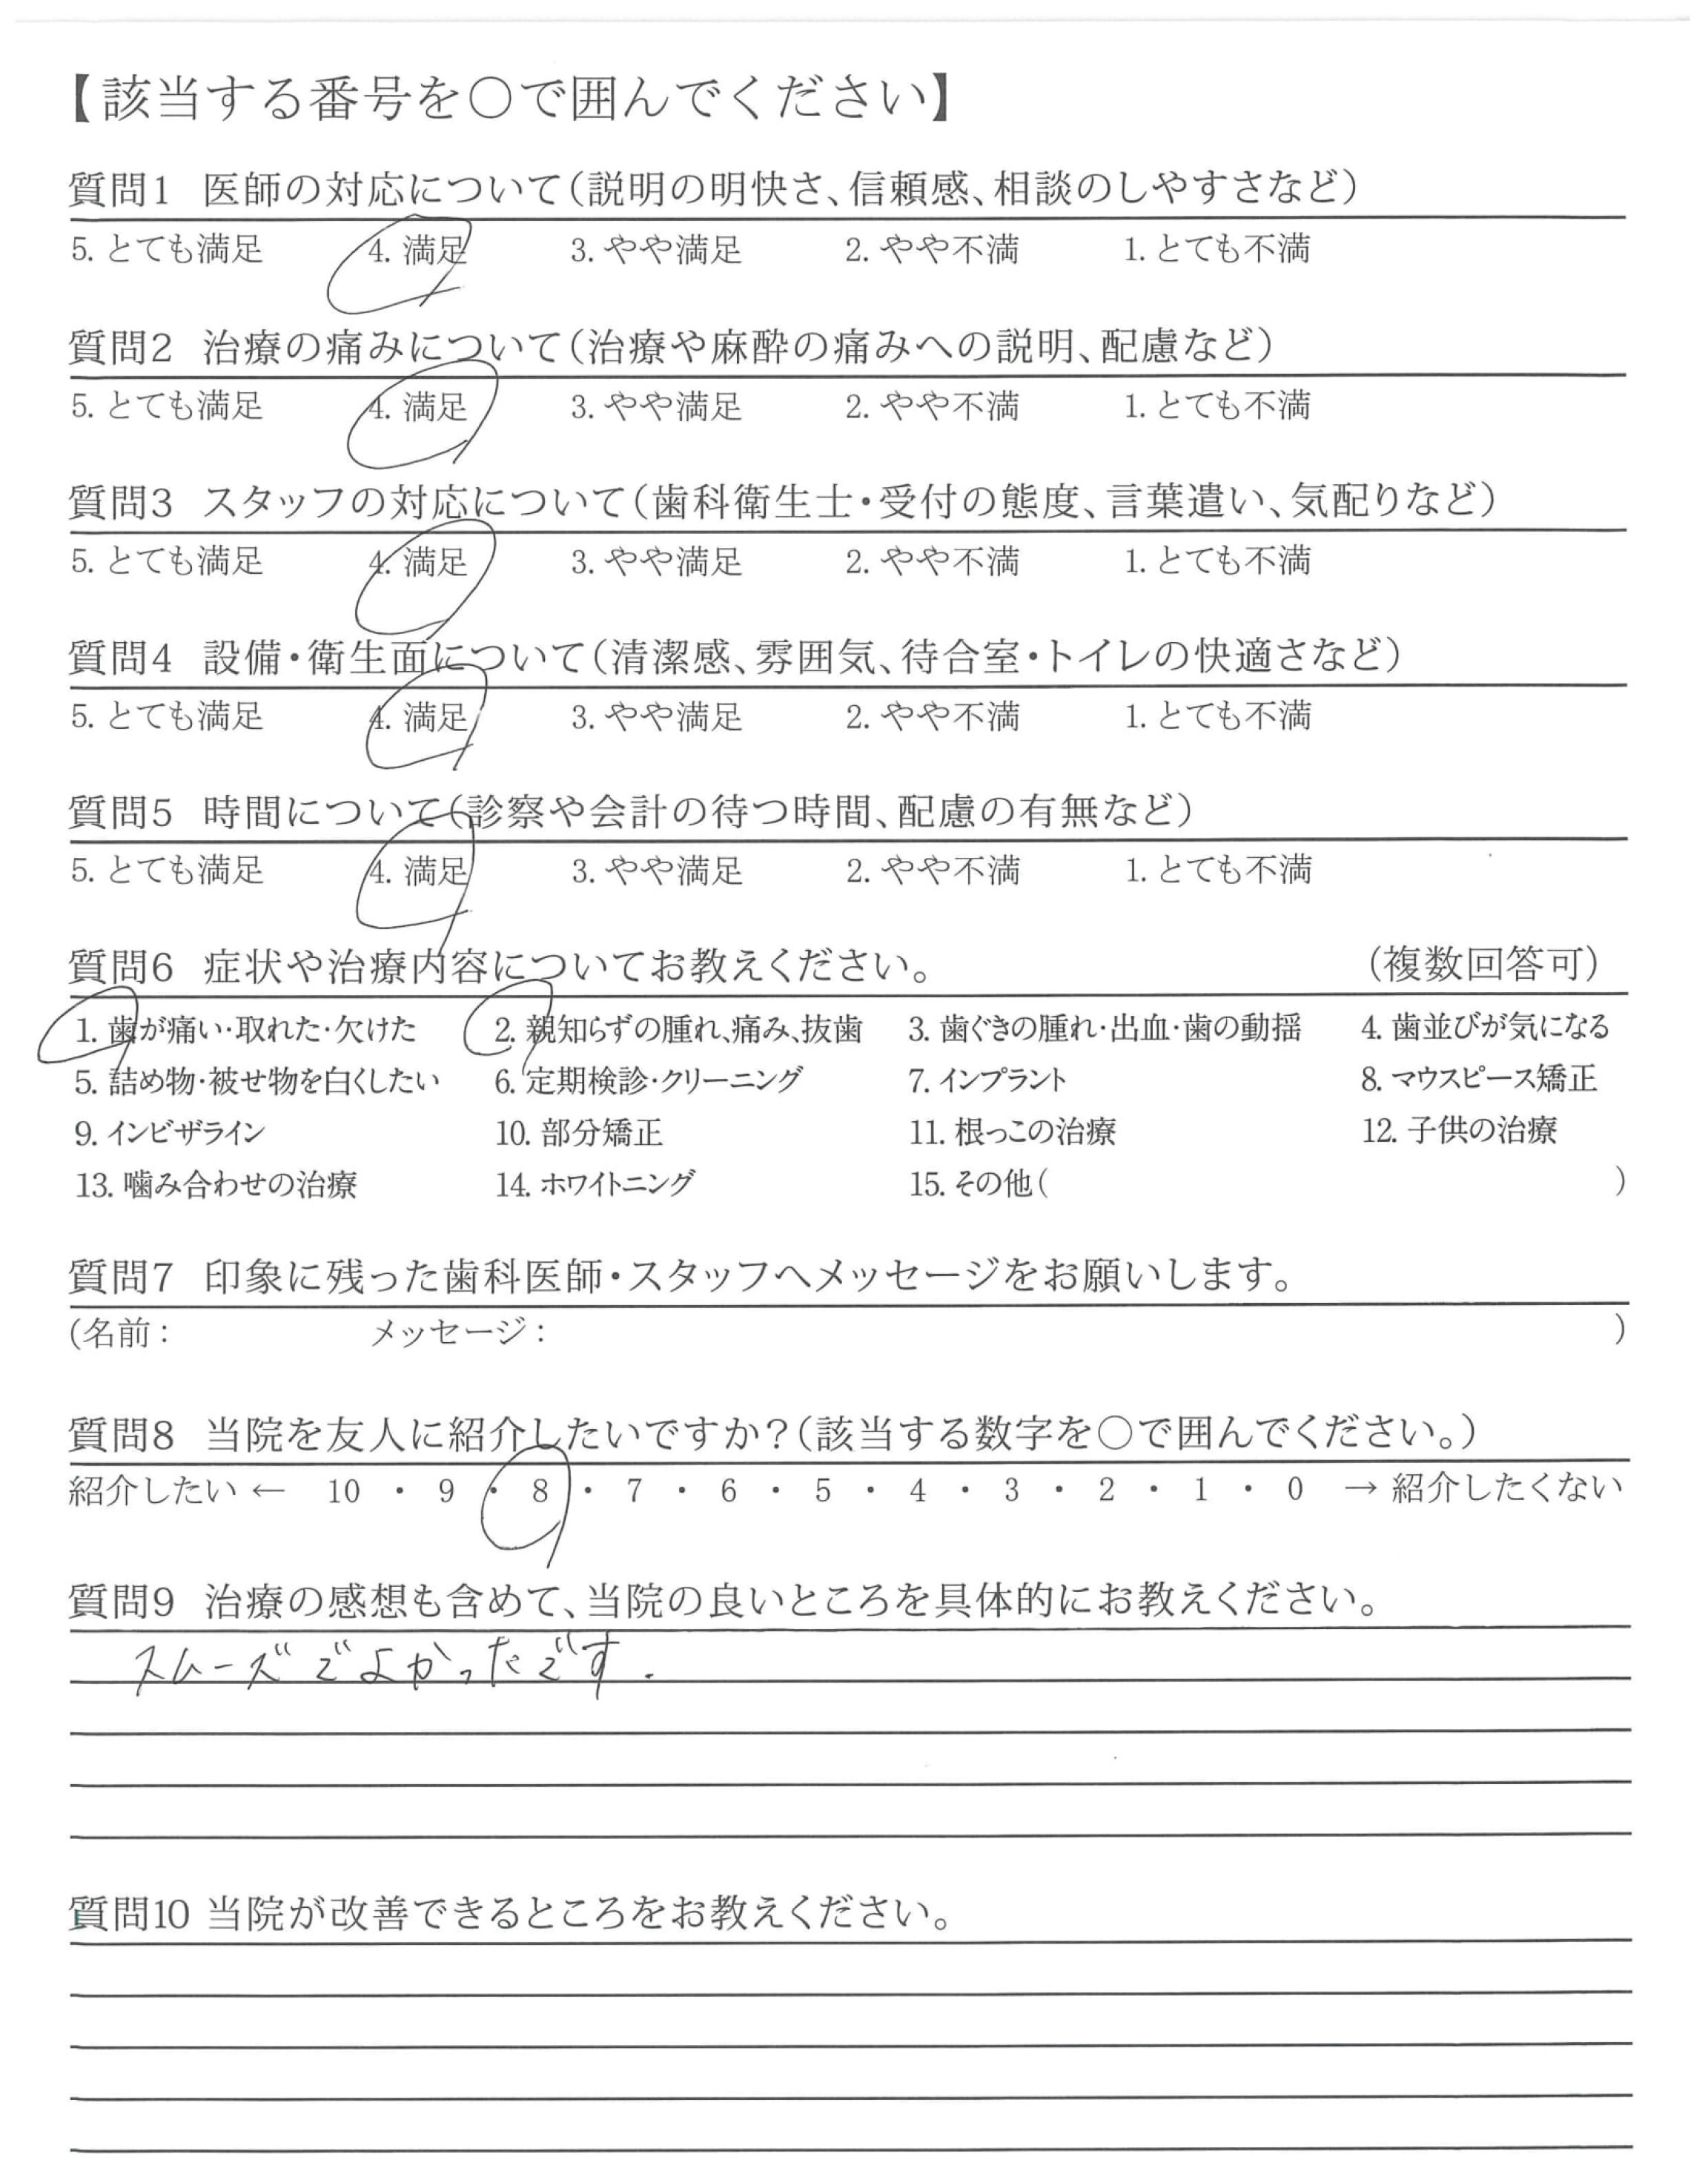 【該当する番号を〇で囲んでください】
質問1 医師の対応について（説明の明快さ、信頼感、相談のしやすさなど）
5. とても満足 4. 満足 3. やや満足 2. やや不満 1. とても不満
質問2 治療の痛みについて（治療や麻酔の痛みへの説明、配慮など）
5. とても満足 4. 満足 3. やや満足 2. やや不満 1. とても不満
質問3 スタッフの対応について（歯科衛生士・受付の態度、言葉遣い、気配りなど）
5. とても満足 4. 満足 3. やや満足 2. やや不満 1. とても不満
質問4 設備・衛生面について（清潔感、雰囲気、待合室・トイレの快適さなど）
5. とても満足 4. 満足 3. やや満足 2. やや不満 1. とても不満
質問5 時間について（診察や会計の待つ時間、配慮の有無など）
5. とても満足 4. 満足 3. やや満足 2. やや不満 1. とても不満
質問6 症状や治療内容についてお教えください。 （複数回答可）
1. 歯が痛い・取れた・欠けた 2. 親知らずの腫れ、痛み、抜歯 3. 歯ぐきの腫れ・出血・歯の動揺 4. 歯並びが気になる
5. 詰め物・被せ物を白くしたい 6. 定期検診・クリーニング 7. インプラント 8. マウスピース矯正
9. インビザライン 10. 部分矯正 11. 根っこの治療 12. 子供の治療
13. 噛み合わせの治療 14. ホワイトニング 15. その他（ ）
質問7 印象に残った歯科医師・スタッフへメッセージをお願いします。
（名前： メッセージ： ）
質問8 当院を友人に紹介したいですか？（該当する数字を〇で囲んでください。）
紹介したい ← 10 ・ 9 ・ 8 ・ 7 ・ 6 ・ 5 ・ 4 ・ 3 ・ 2 ・ 1 ・ 0 → 紹介したくない
質問9 治療の感想も含めて、当院の良いところを具体的にお教えください。
スムーズでよかったです.
質問10 当院が改善できるところをお教えください。